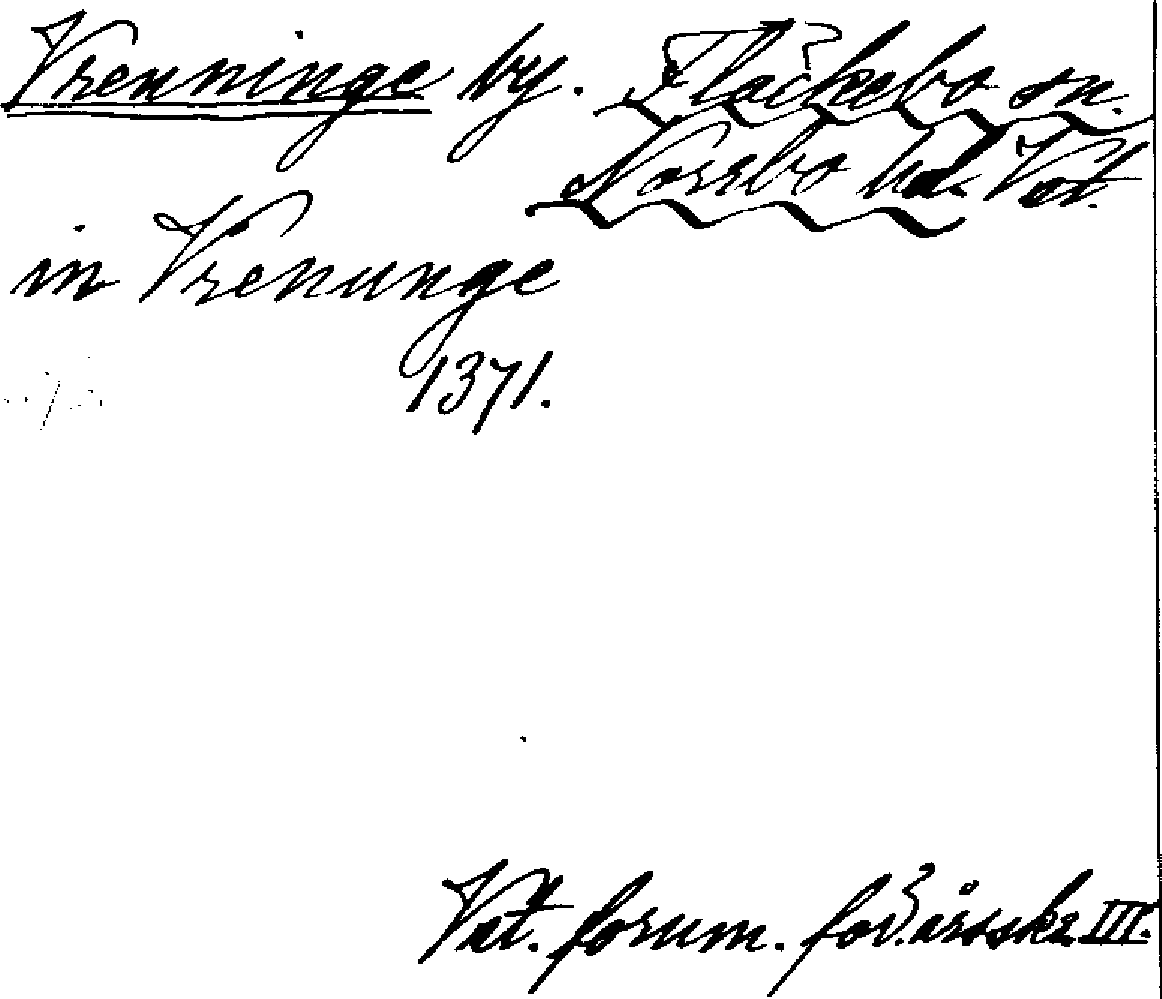 Vrenninge by. Fläckebo sn.
Norrbo hd. Vst.
in Vrenunge
1371.
Vst. fornm. för. årsskr. III.